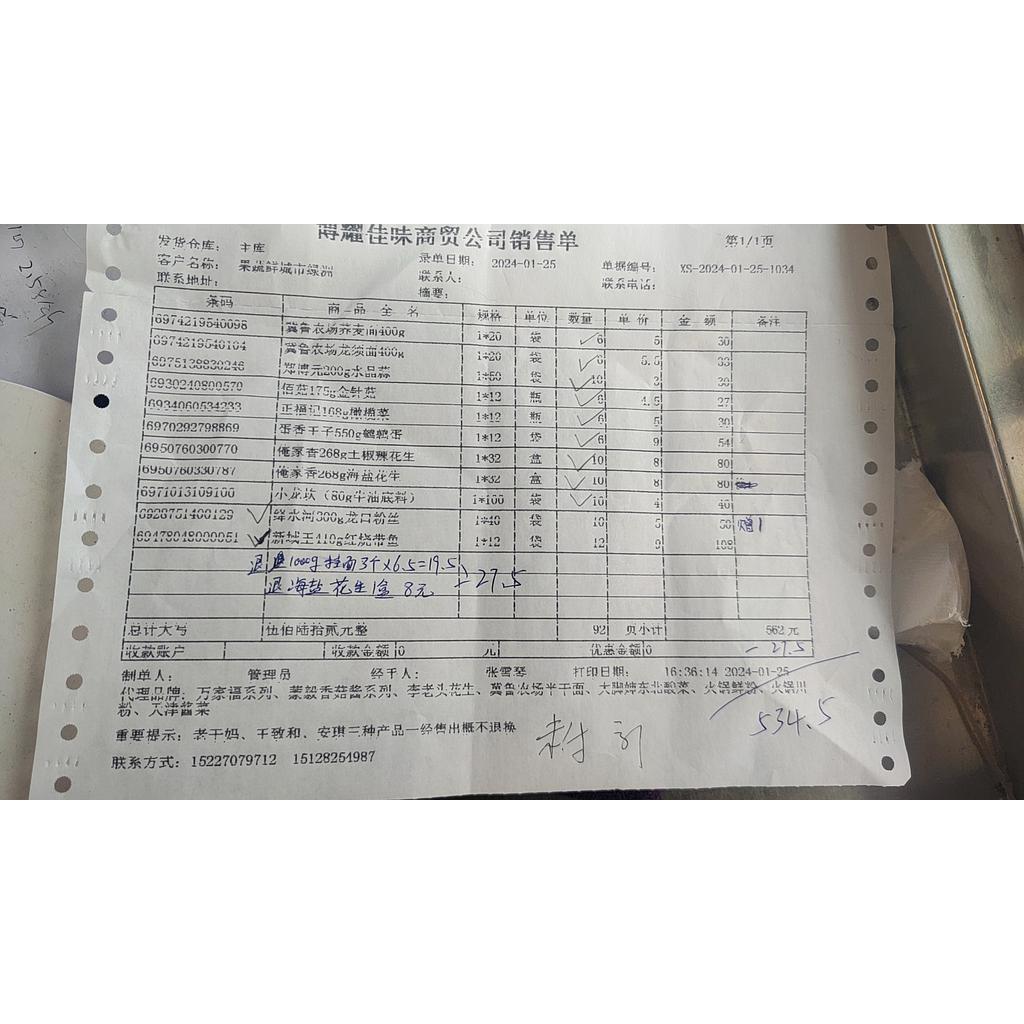 博耀佳味商贸公司销售单
发货仓库： 主库 录单日期： 2024-01-25 第1/1页
客户名称： 果蔬鲜城市绿洲 联系人： 单据编号： XS-2024-01-25-1034
联系地址： 摘要： 联系电话：
条码 商 品 全 名 规格 单位 数量 单 价 金 额 备注
6974219540098 冀鲁农场荞麦面400g 1*20 袋 6 5 30
6974219540104 冀鲁农场龙须面400g 1*20 袋 6 5.5 33
6975138830246 郑博元200g水晶蒜 1*50 袋 10 3 30
6930240800570 佰菇175g金针菇 1*12 瓶 6 4.5 27
6934060534233 正福记168g橄榄菜 1*12 瓶 6 5 30
6970292798869 蛋香干子550g鹌鹑蛋 1*12 袋 6 9 54
6950760300770 俺家香268g土椒辣花生 1*32 盒 10 8 80
6950760330787 俺家香268g海盐花生 1*32 盒 10 8 80
6971013109100 小龙坎（80g牛油底料） 1*100 袋 10 4 40
6928751400129 绛水河300g龙口粉丝 1*40 袋 10 5 50 赠1
69478048000051 新线王410g红烧带鱼 1*12 袋 12 9 108
退 1000g挂面3个×6.5=19.5
退 海盐花生1盒 8元 -27.5
总计大写 伍佰陆拾贰元整 92 页小计 562 元
收款账户 收款金额 0 元 优惠金额 0 -27.5
制单人： 管理员 经手人： 张雪琴 打印日期： 16:36:14 2024-01-25
代理品牌：万家福系列、蒙毅香菇酱系列、李老头花生、冀鲁农场半干面、大脚婶东北酸菜、火锅鲜粉、火锅川
粉、天津酱菜
534.5
重要提示：老干妈、王致和、安琪三种产品一经售出概不退换
联系方式：15227079712 15128254987